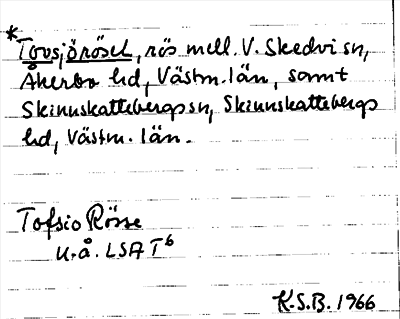 *Tovsjörösel, rös mell. V. Skedvi sn,
Åkerbo hd, Västm. län, samt
Skinnskattebergs sn, Skinnskattebergs
hd, Västm. län.
Tofsio Rösse
u.å. LSA T6
K.S.B. 1966